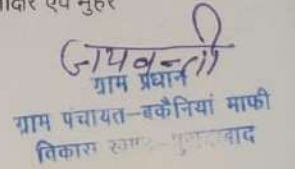 एवं मुहर
जयवन्ती
ग्राम प्रधान
ग्राम पंचायत-बकैनियां माफी
विकास